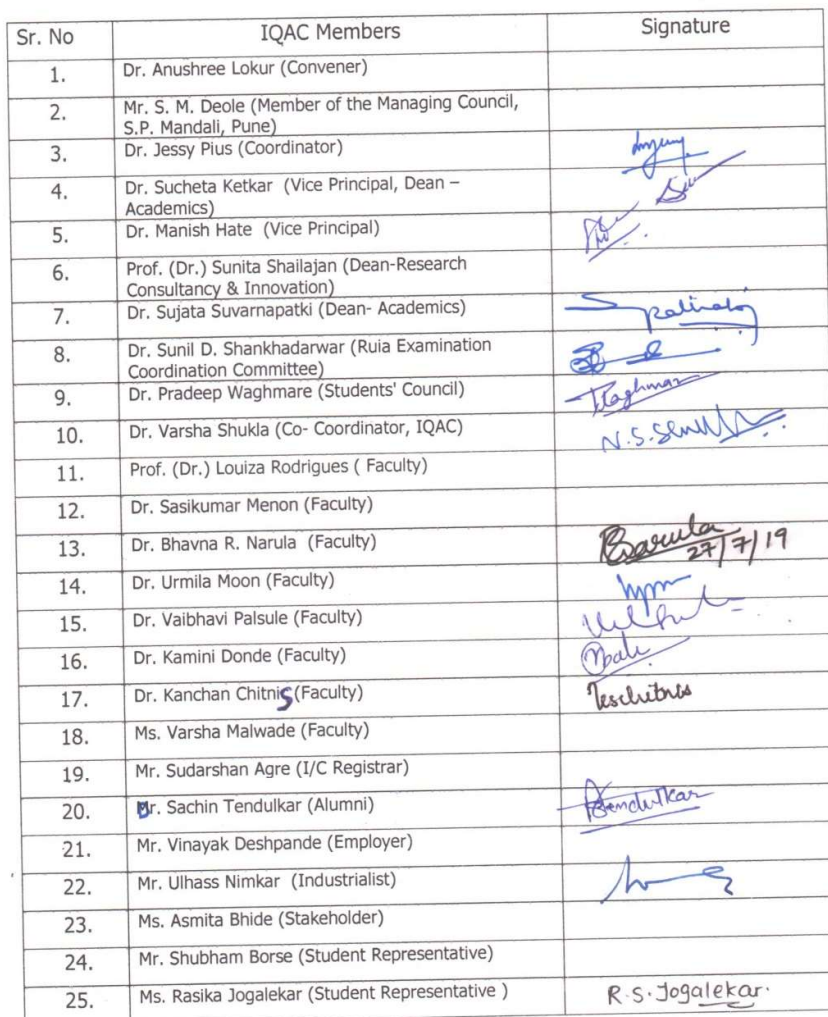 Sr. No IQAC Members Signature
1. Dr. Anushree Lokur (Convener)
2. Mr. S. M. Deole (Member of the Managing Council,
S.P. Mandali, Pune)
3. Dr. Jessy Pius (Coordinator)
4. Dr. Sucheta Ketkar (Vice Principal, Dean –
Academics)
5. Dr. Manish Hate (Vice Principal)
6. Prof. (Dr.) Sunita Shailajan (Dean-Research
Consultancy & Innovation)
7. Dr. Sujata Suvarnapatki (Dean- Academics)
8. Dr. Sunil D. Shankhadarwar (Ruia Examination
Coordination Committee)
9. Dr. Pradeep Waghmare (Students' Council)
10. Dr. Varsha Shukla (Co- Coordinator, IQAC)
11. Prof. (Dr.) Louiza Rodrigues ( Faculty)
12. Dr. Sasikumar Menon (Faculty)
13. Dr. Bhavna R. Narula (Faculty)
27/7/19
14. Dr. Urmila Moon (Faculty)
15. Dr. Vaibhavi Palsule (Faculty)
16. Dr. Kamini Donde (Faculty)
17. Dr. Kanchan Chitnis (Faculty)
18. Ms. Varsha Malwade (Faculty)
19. Mr. Sudarshan Agre (I/C Registrar)
20. Dr. Sachin Tendulkar (Alumni)
21. Mr. Vinayak Deshpande (Employer)
22. Mr. Ulhass Nimkar (Industrialist)
23. Ms. Asmita Bhide (Stakeholder)
24. Mr. Shubham Borse (Student Representative)
25. Ms. Rasika Jogalekar (Student Representative ) R.S. Jogalekar.